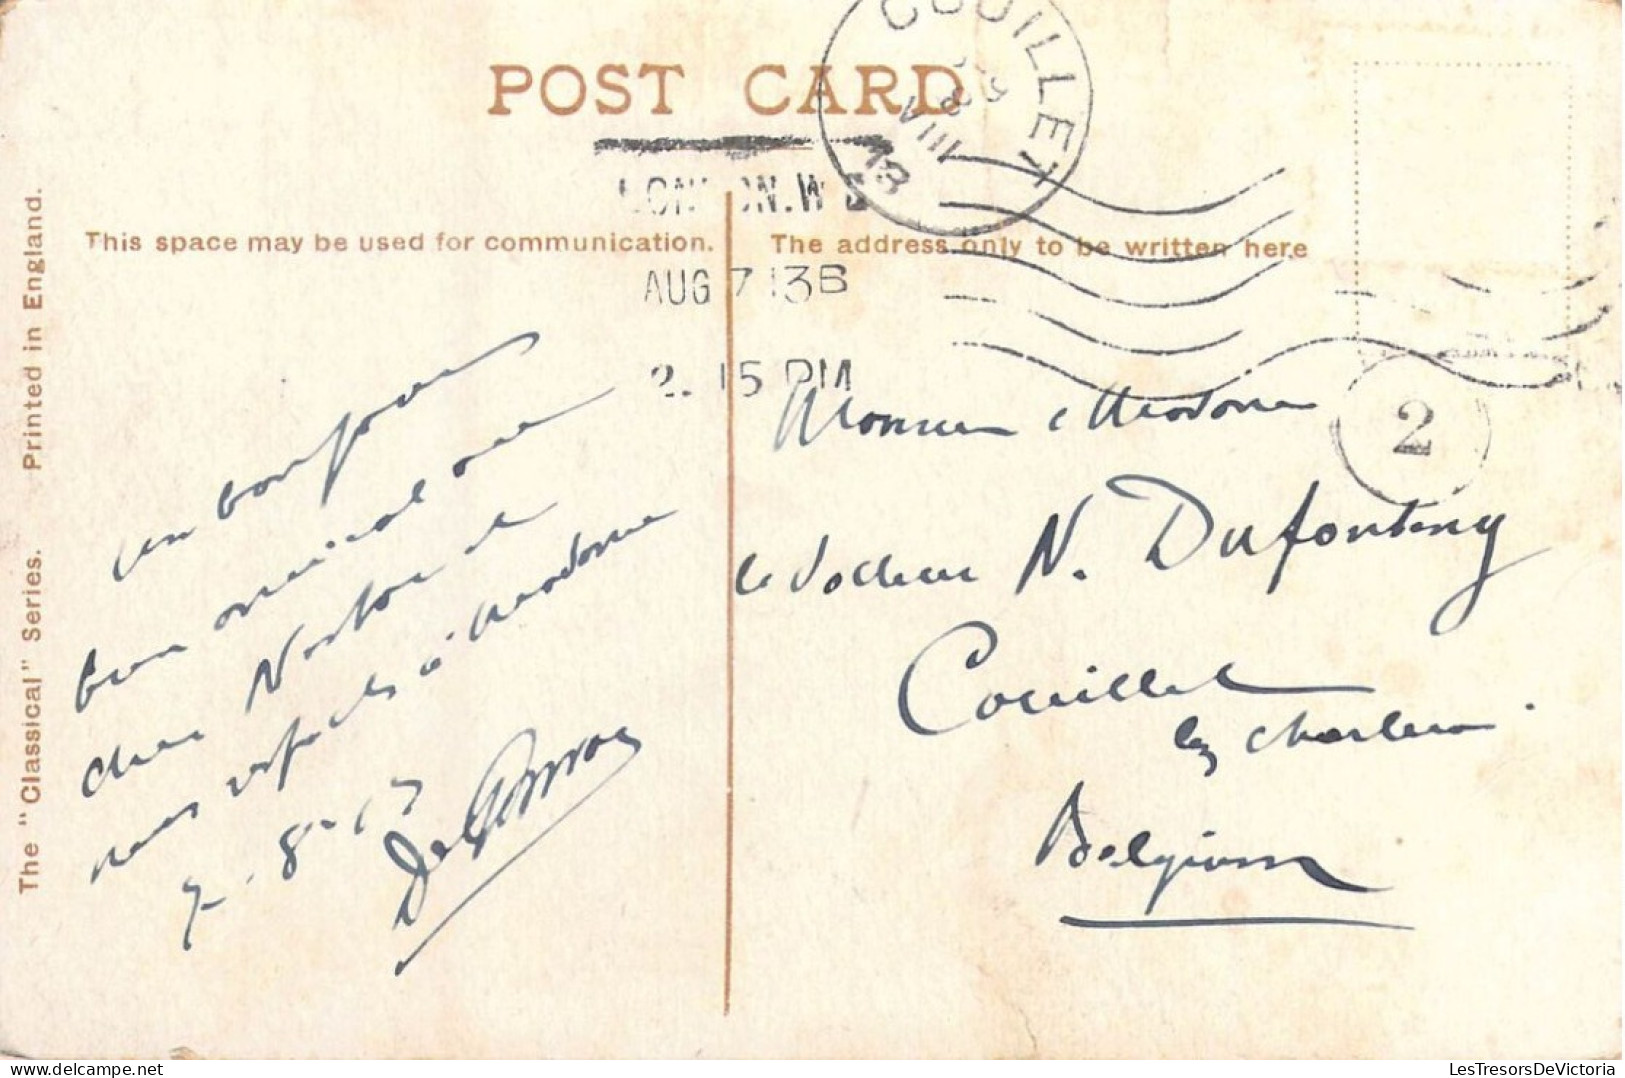 POST CARD
COUILLET
8 VIII 13
LONDON. W
AUG 7 13B
2. 15 PM
This space may be used for communication.
The address only to be written here
The "Classical" Series. Printed in England.
2
un bonjour
bien amical mon
cher Nestor et
mes respects à Madame
7-8-13
Monsieur & Madame
le Docteur N. Dufonteny
Couillet
lez Charleroi
Belgium
LesTresorsDeVictoria